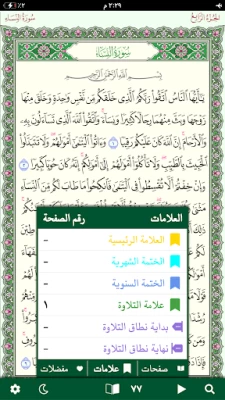 ٢:٢٩ م
٪٢
الجزء الرابع
سورة النساء
سورة النساء
بسم الله الرحمن الرحيم
يَٰٓأَيُّهَا ٱلنَّاسُ ٱتَّقُوا۟ رَبَّكُمُ ٱلَّذِى خَلَقَكُم مِّن نَّفْسٍ وَٰحِدَةٍ وَخَلَقَ مِنْهَا
زَوْجَهَا وَبَثَّ مِنْهُمَا رِجَالًا كَثِيرًا وَنِسَآءً وَٱتَّقُوا۟ ٱللَّهَ ٱلَّذِى تَسَآءَلُونَ بِهِۦ
وَٱلْأَرْحَامَ إِنَّ ٱللَّهَ كَانَ عَلَيْكُمْ رَقِيبًا ١ وَءَاتُوا۟ ٱلْيَتَٰمَىٰٓ أَمْوَٰلَهُمْ وَلَا تَتَبَدَّلُوا۟
ٱلْخَبِيثَ بِٱلطَّيِّبِ وَلَا تَأْكُلُوٓا۟ أَمْوَٰلَهُمْ إِلَىٰٓ أَمْوَٰلِكُمْ إِنَّهُۥ كَانَ حُوبًا كَبِيرًا ٢
وَإِنْ خِفْتُمْ أَلَّا تُقْسِطُوا۟ فِى ٱلْيَتَٰمَىٰ فَٱنكِحُوا۟ مَا طَابَ لَكُم مِّنَ
العلامات رقم الصفحة
العلامة الرئيسية -
الختمة الشهرية -
الختمة السنوية -
علامة التلاوة ١
بداية نطاق التلاوة -
نهاية نطاق التلاوة -
صفحات علامات مفضلات
٧٧